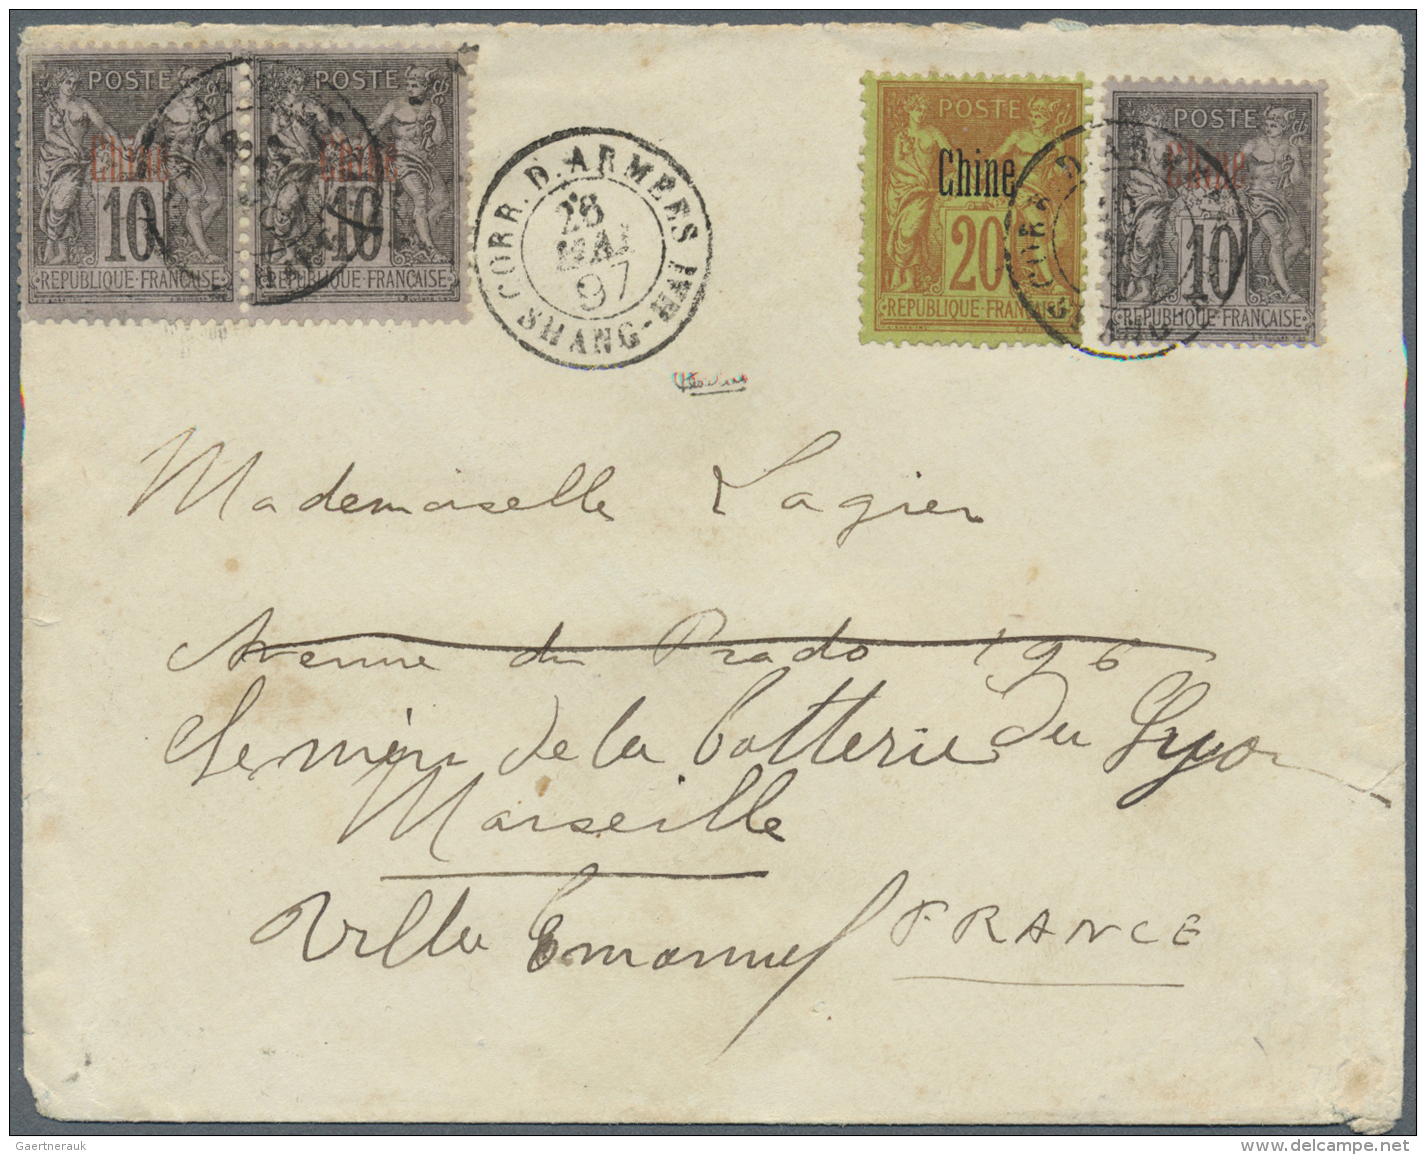 POSTE POSTE
Chine Chine
10 10
REPUBLIQUE FRANÇAISE REPUBLIQUE FRANÇAISE
CORR. D. ARMEES
SHANG-HAI
28
MAI
97
POSTE POSTE
Chine Chine
20 10
REPUBLIQUE FRANÇAISE REPUBLIQUE FRANÇAISE
Mademoiselle Lagier
Avenue du Prado 196
Chemin de la batterie du
Marseille
Villa Emanuel FRANCE
Gaertnerauk
www.delcampe.net